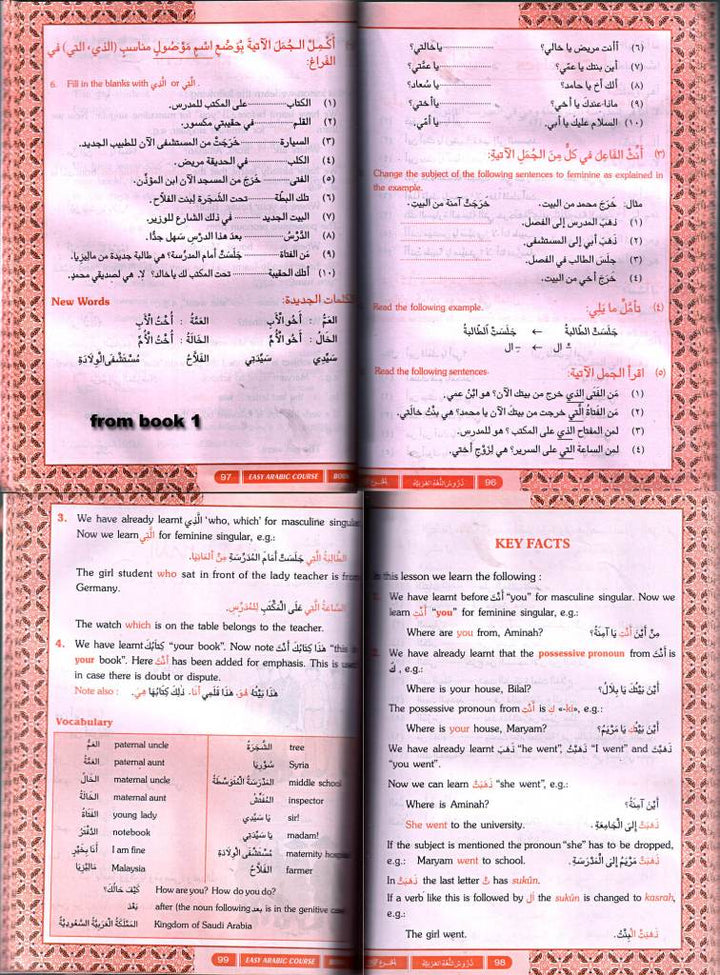 (٦) أأنت مريض يا خالي؟ ............ يا خالتي؟
(٧) أين بنتك يا عمّي؟ ............ يا عمّتي؟
(٨) ألك أخ يا حامد؟ ............ يا سُعاد؟
(٩) ماذا عندك يا أخي؟ ............ يا أختي؟
(١٠) السلام عليك يا أبي. ............ يا أمّي.
(٣) أَنِّثْ الفَاعِلَ في كلٍّ مِنَ الجُمَلِ الآتيةِ:
Change the subject of the following sentences to feminine as explained in
the example.
مثال: خَرَجَ محمد من البيت. خَرَجَتْ آمنة من البيت.
(١) ذهَبَ المدرس إلى الفصل.
(٢) ذهَبَ أبي إلى المستشفى.
(٣) جلسَ الطالب في الفصل.
(٤) خَرَجَ أخي من البيت.
(٤) تأمّلْ ما يَلِي:
Read the following example.
جَلسَتْ الطالبةُ ← جَلسَتِ الطالبةُ
ـْ ال ← ـِ ال
(٥) اقرأ الجمل الآتية:
Read the following sentences-
(١) مَن الفَتَى الذي خرج من بيتك الآن؟ هو ابْنُ عمي.
(٢) مَن الفَتاةُ الَّتِي خرجت من بيتك الآن يا محمد؟ هي بنْتُ خالَتِي.
(٣) لمن المفتاح الذي على المكتب؟ هو للمدرس.
(٤) لمن الساعة التي على السرير؟ هي لِزَوْجِ أختي.
دُرُوسُ اللُّغَةِ العَرَبِيَّةِ
96
أكْمِلْ الجُمَلَ الآتيةَ بِوَضْعِ اسْمٍ مَوْصُولٍ مناسبٍ (الذي، التي) في
الفَراغِ:
6. Fill in the blanks with الَّذِي or الَّتِي .
(١) الكتاب ............ على المكتب للمدرس.
(٢) القلم ............ في حقيبتي مكسور.
(٣) السيارة ............ خَرَجَتْ من المستشفى الآن للطبيب الجديد.
(٤) الكلب ............ في الحديقة مريض.
(٥) الفتى ............ خَرَجَ من المسجد الآن ابن المؤذّن.
(٦) تلك البطّة ............ تحت الشجَرة لِبنت الفلاّح.
(٧) البيت الجديد ............ في ذلك الشارع للوزير.
(٨) الدَّرْسُ ............ بعدَ هذا الدرس سَهل جدًّا.
(٩) مَن الفتاة ............ جَلَسَتْ أمام المدرّسة؟ هي طالبة جديدة من ماليزيا.
(١٠) أتلك الحقيبة ............ تحت المكتب لك يا خالد؟ لا. هي لصديقي محمدٍ.
New Words الكلمات الجديدة:
العَمُّ : أَخُو الأَبِ العَمَّةُ : أُخْتُ الْأَبِ
الخَالُ : أَخُو الأُمِّ الخَالَةُ : أُخْتُ الأُمِّ
سَيِّدِي سَيِّدَتِي الفَلَّاحُ مُسْتَشْفَى الْوِلَادَةِ
from book 1
97 EASY ARABIC COURSE BOOK
KEY FACTS
in this lesson we learn the following :
We have learnt before أَنْتَ "you" for masculine singular. Now we
learn أَنْتِ "you" for feminine singular, e.g.:
Where are you from, Aminah? مِنْ أَيْنَ أَنْتِ يَا آمِنَةُ؟
We have already learnt that the possessive pronoun from أَنْتَ is
كَ , e.g.:
Where is your house, Bilal? أَيْنَ بَيْتُكَ يَا بِلَالُ؟
The possessive pronoun from أَنْتِ is كِ «-ki», e.g.:
Where is your house, Maryam? أَيْنَ بَيْتُكِ يَا مَرْيَمُ؟
We have already learnt ذَهَبَ "he went", ذَهَبْتُ "I went" and ذَهَبْتَ
"you went".
Now we can learn ذَهَبَتْ "she went", e.g.:
Where is Aminah? أَيْنَ آمِنَةُ؟
She went to the university. ذَهَبَتْ إِلَى الْجَامِعَةِ.
If the subject is mentioned the pronoun "she" has to be dropped,
e.g.: Maryam went to school. ذَهَبَتْ مَرْيَمُ إِلَى الْمَدْرَسَةِ.
In ذَهَبَتْ the last letter تْ has sukûn.
If a verb like this is followed by اَلْ the sukûn is changed to kasrah,
e.g.:
The girl went. ذَهَبَتِ الْبِنْتُ.
دُرُوسُ اللُّغَةِ العَرَبِيَّةِ
98
3. We have already learnt الَّذِي 'who, which' for masculine singular
Now we learn الَّتِي for feminine singular, e.g.:
الطَّالِبَةُ الَّتِي جَلَسَتْ أَمَامَ الْمُدَرِّسَةِ مِنْ أَلْمَانِيَا.
The girl student who sat in front of the lady teacher is from
Germany.
السَّاعَةُ الَّتِي عَلَى الْمَكْتَبِ لِلْمُدَرِّسِ.
The watch which is on the table belongs to the teacher.
4. We have learnt هَذَا كِتَابُكَ "your book". Now note هَذَا كِتَابُكَ أَنْتَ "this is
your book". Here أَنْتَ has been added for emphasis. This is used
in case there is doubt or dispute.
Note also : هَذَا بَيْتُهُ هُوَ. هَذَا قَلَمِي أَنَا. ذَلِكَ كِتَابُهَا هِيَ.
Vocabulary
العَمُّ paternal uncle الشَّجَرَةُ tree
العَمَّةُ paternal aunt سُوْرِيَا Syria
الخَالُ maternal uncle المَدْرَسَةُ الْمُتَوَسِّطَةُ middle school
الخَالَةُ maternal aunt المُفَتِّشُ inspector
الفَتَاةُ young lady يَا سَيِّدِي sir!
الدَّفْتَرُ notebook يَا سَيِّدَتِي madam!
أَنَا بِخَيْرٍ I am fine مُسْتَشْفَى الْوِلَادَةِ maternity hospital
مَالِيْزِيَا Malaysia الفَلَّاحُ farmer
كَيْفَ حَالُكَ؟ How are you? How do you do?
بَعْدَ after (the noun following بعد is in the genitive case
المَمْلَكَةُ الْعَرَبِيَّةُ السَّعُودِيَّةُ Kingdom of Saudi Arabia
99 EASY ARABIC COURSE